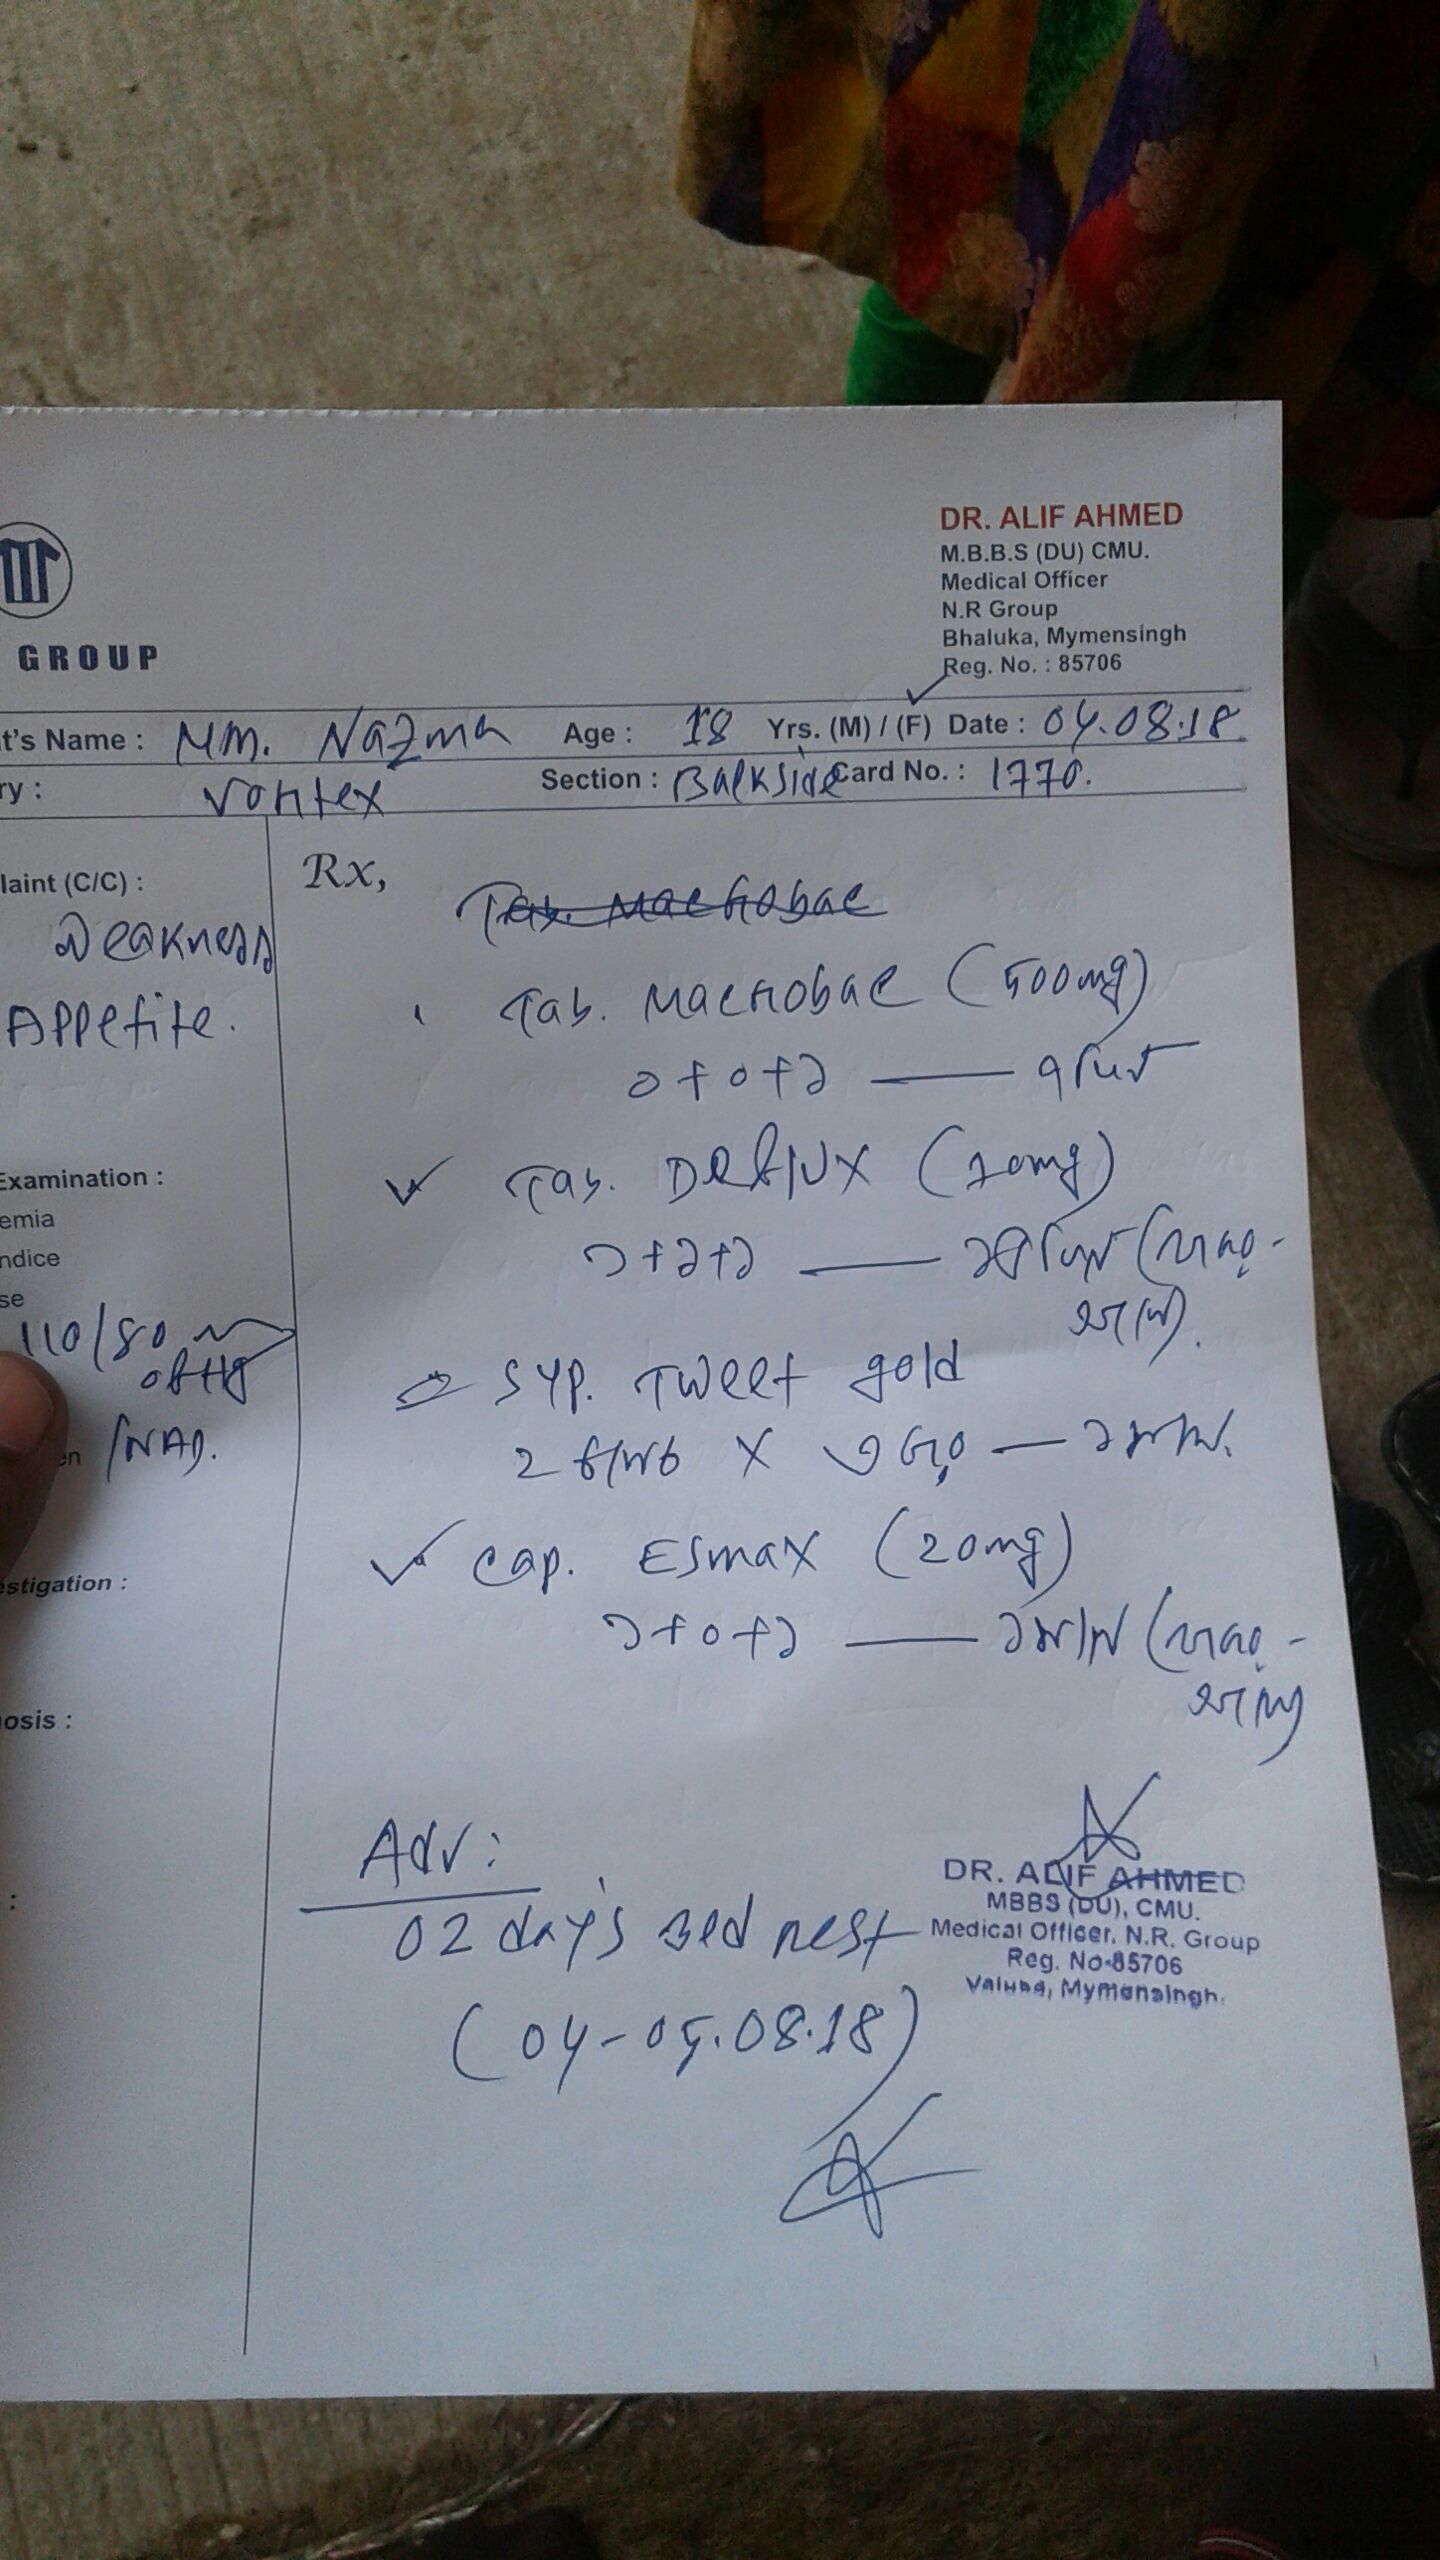 GROUP
DR. ALIF AHMED
M.B.B.S (DU) CMU.
Medical Officer
N.R Group
Bhaluka, Mymensingh
Reg. No. : 85706
t's Name : MM. Nazma Age : 18 Yrs. (M) / (F) Date : 04.08.18
ry : Vortex Section : Backside Card No. : 1770.
laint (C/C) :
Weakness
Appetite.
Examination :
emia
ndice
se
110/80
of Hg
en /NAD.
estigation :
nosis :
:
Rx,
Tab. Macrobac
Tab. Macrobac (500mg)
০+০+১ — ৭দিন
Tab. Deflux (10mg)
১+১+১ —
Syp. Tweet gold
২ চামচ X ৩ বার — ১মাস.
Cap. Esmax (20mg)
১+০+১ — ১মাস
Adv:
02 day's Bed rest
(04-05.08.18)
DR. ALIF AHMED
MBBS (DU), CMU.
Medical Officer, N.R. Group
Reg. No-85706
Valuka, Mymensingh.